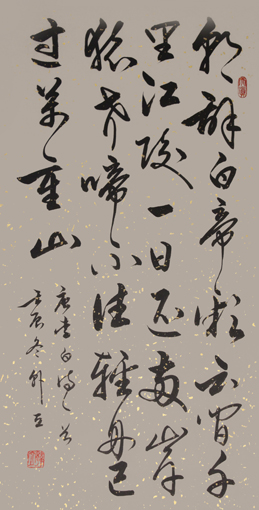 朝辞白帝彩云間千
里江陵一日还两岸
猿声啼不住輕舟已
过萬重山
唐李白诗一首
壬辰冬